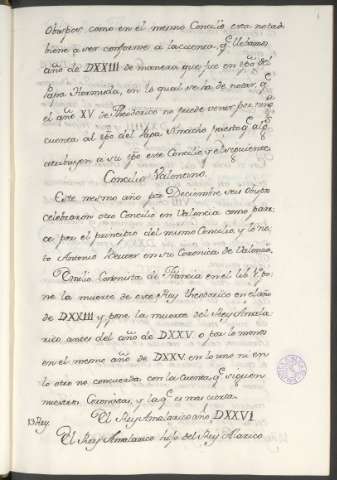 Obispos, como en el mesmo Concilio esta notad
biene a ver conforme a la cuenta q̃ llebamos
año de DXXIII de manera que fue en tp̃o del
Papa Hormisda, en lo qual se ha de notar, q̃
el año XV de Theodorico no puede venir por
cuenta al tp̃o del Papa Simacho puesto q̃
atribuyen a su tp̃o este Concilio y el siguiente
Concilio Valentino.
Este mesmo año por Deciembre seis Obispos
celebraron otro Concilio en Valencia como pare-
ce por el principio del mismo Concilio, y lo no-
to Antonio Beuter en su Coronica de Valencia,
Emilio Coronista de Francia en el lib. V. po-
ne la muerte de este Rey Theodorico en el año
de DXXIII y pone la muerte del Rey Amala-
rico antes del año de DXXV o por lo menos
en el mesmo año de DXXV. en lo uno ni en
lo otro no concuerda con la cuenta q̃ siguen
nuestras Coronicas, y la q̃ es mas cierta.
El Rey Amalarico año DXXVI
13 Rey El Rey Amalarico hijo del Rey Alarico